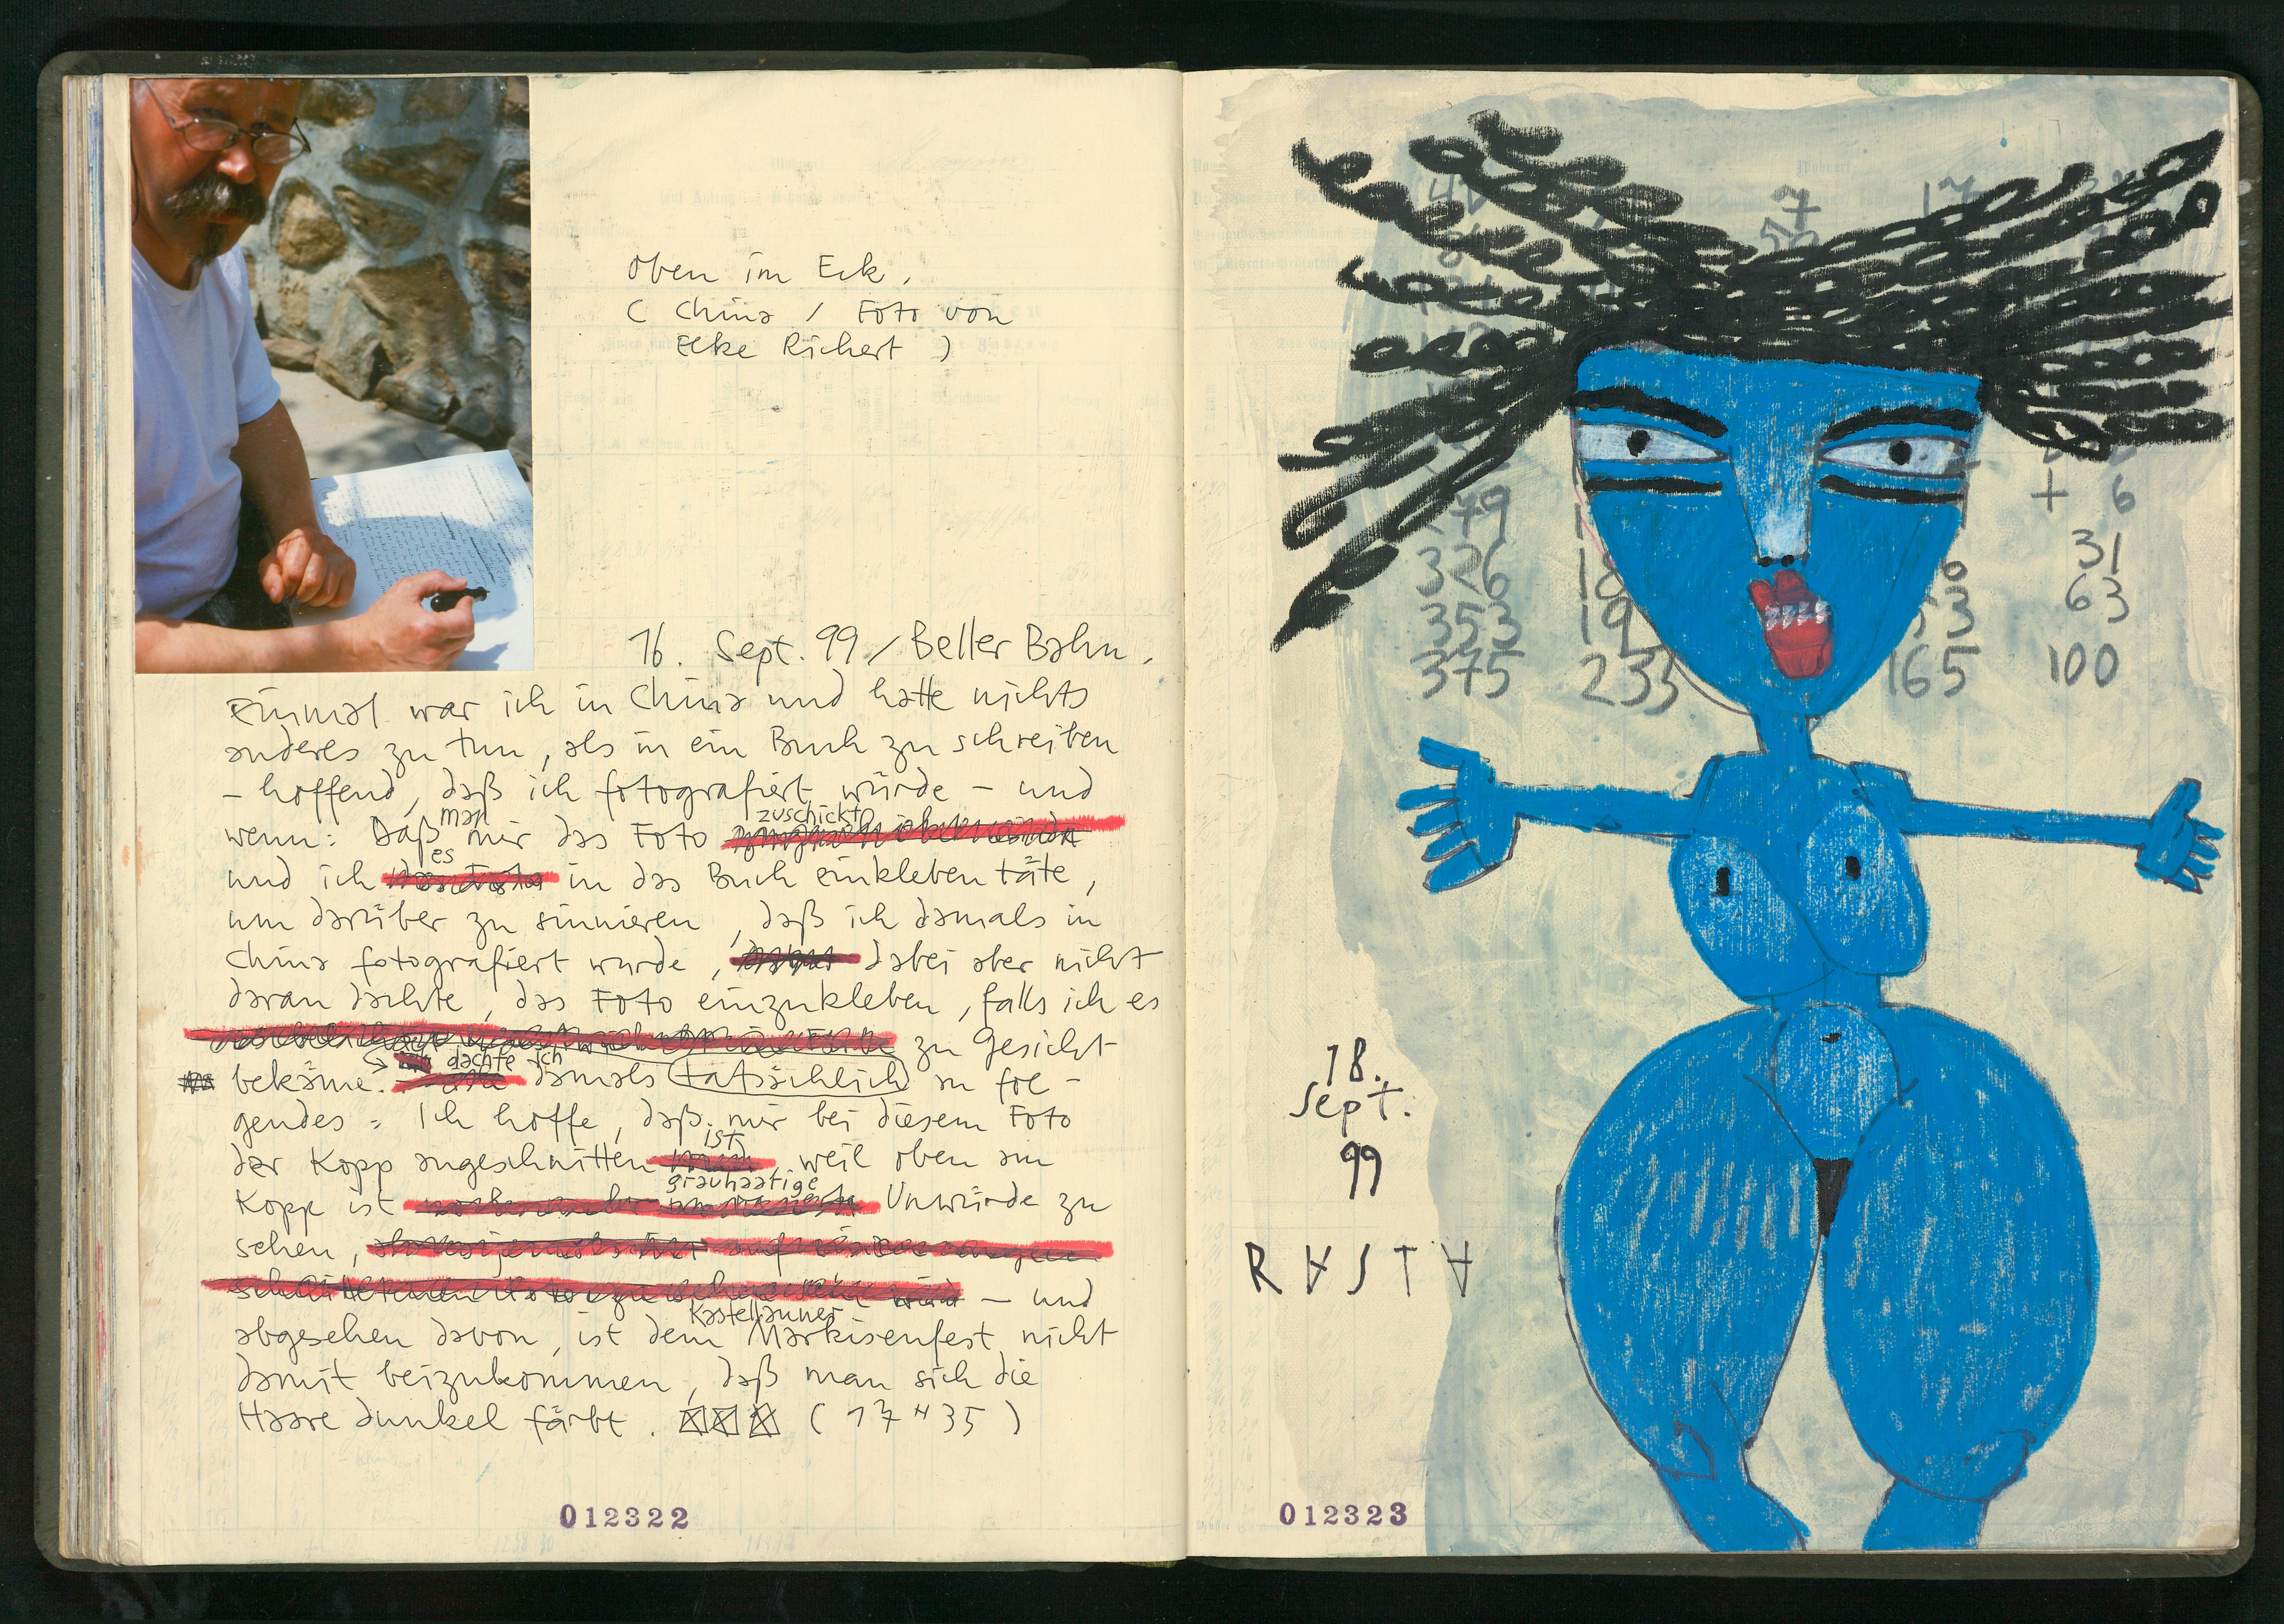 oben im Eck.
( China / Foto von
Elke Richert )
16. Sept. 99 / Beller Bahn.
Einmal war ich in China und hatte nichts
anderes zu tun, als in ein Buch zu schreiben
– hoffend, daß ich fotografiert würde – und
man zuschickt
wenn: Daß mir das Foto
es
und ich in das Buch einkleben täte,
um darüber zu sinnieren, daß ich damals in
China fotografiert wurde, dabei aber nicht
daran dachte, das Foto einzukleben, falls ich es
zu Gesicht
dachte ich
bekäme. damals tatsächlich an fol-
gendes: Ich hoffe, daß mir bei diesem Foto
ist
der Kopp angeschnitten, weil oben am
grauhaarige
Kopp ist Unwürde zu
sehen, 
– und
Kastellauner
abgesehen davon, ist dem Markisenfest nicht
damit beizukommen, daß man sich die
Haare dunkel färbt. (17 H 35)
012322
7
17
179
+ 6
326
31
353
63
375 235 165 100
18.
Sept.
99
R∀ST∀
012323